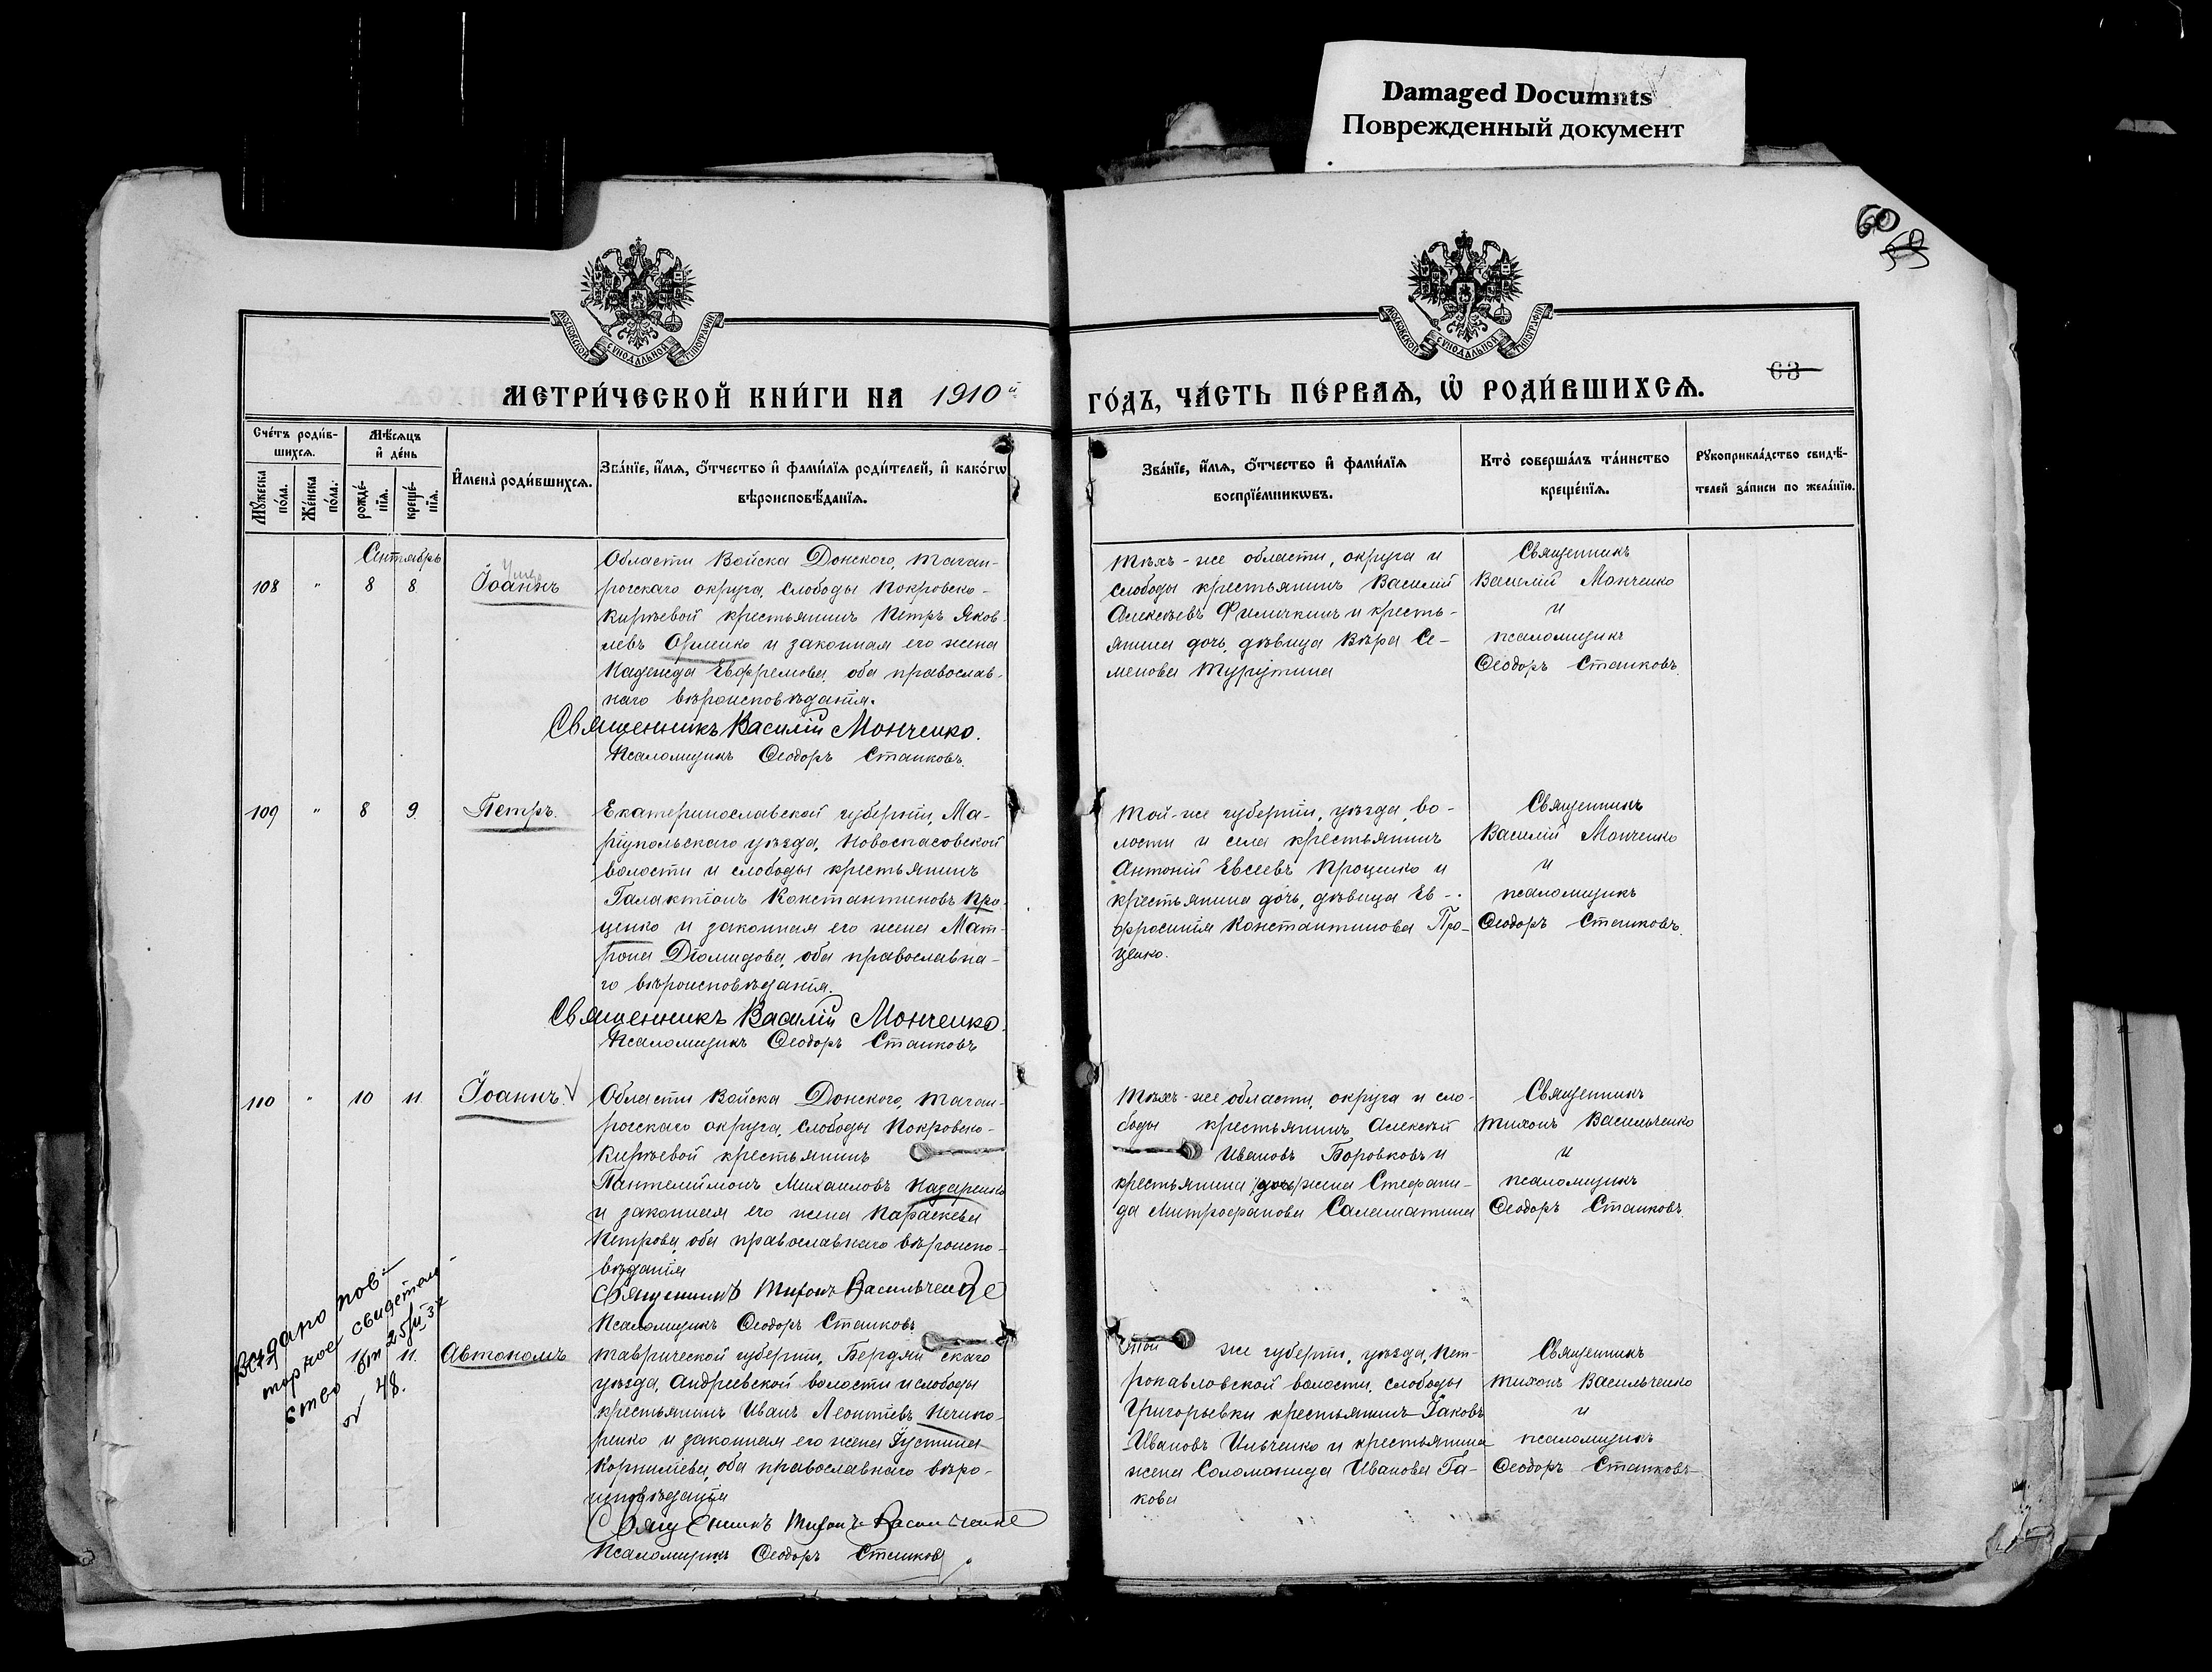 Damaged Documnts
Поврежденный документ
60
59
МОСКОВСКОЙ СѴНОДАЛЬНОЙ ТИПОГРАФІИ
МОСКОВСКОЙ СѴНОДАЛЬНОЙ ТИПОГРАФІИ
63
МЕТРИ́ЧЕСКОЙ КНИ́ГИ НА 1910й
ГО́ДЪ, ЧА́СТЬ ПЕ́РВАѦ, Ѡ҆ РОДИ́ВШИХСѦ.
Сче́тъ роди́в-
шихсѧ.
Мѣ́сѧцъ
и҆ де́нь
Мꙋ́жеска
по́ла.
Же́нска
по́ла.
рожде́-
нїѧ.
креще́-
нїѧ.
И҆мена̀ роди́вшихсѧ.
Зва́нїе, и҆́мѧ, ѻ҆́тчество и҆ фами́лїѧ роди́телей, и҆ како́гѡ
вѣроисповѣ́данїѧ.
Зва́нїе, и҆́мѧ, ѻ҆́тчество и҆ фами́лїѧ
воспрїе́мникѡвъ.
Кто̀ соверша́лъ та́инство
креще́нїѧ.
Рꙋкоприкла́дство свидѣ́-
телей за́писи по жела́нїю.
Сентябрь
108 " 8 8 Іоаннъ
Области Войска Донского, Таган-
рогскаго округа, слободы Покровско-
Киреевой крестьянинъ Петръ Яков-
левъ Орленко и законная его жена
Надежда Евфремова, оба православ-
наго вѣроисповѣданія.
Священникъ Василій Монченко.
Псаломщикъ Ѳеодоръ Станковъ.
Тѣхъ-же области, округа и
слободы крестьянинъ Василій
Алексѣевъ Филичкинъ и кресть-
янина дочь, дѣвица Вѣра Се-
менова Турутина
Священникъ
Василій Монченко
и
псаломщикъ
Ѳеодоръ Станковъ.
109 " 8 9 Петръ.
Екатеринославской губерніи, Ма-
ріупольскаго уѣзда, Новоспасовской
волости и слободы крестьянинъ
Галактіонъ Константиновъ Про-
ценко и законная его жена Мат-
рона Діомидова, оба православна-
го вѣроисповѣданія.
Священникъ Василій Монченко.
Псаломщикъ Ѳеодоръ Станковъ
Той-же губерніи, уѣзда, во-
лости и села крестьянинъ
Антоній Евсеевъ Проценко и
крестьянина дочь, дѣвица Ев-
фросинія Константинова Про-
ценко.
Священникъ
Василій Монченко
и
псаломщикъ
Ѳеодоръ Станковъ.
110 " 10 11. Іоаннъ.
Области Войска Донского, Таган-
рогскаго округа, слободы Покровско-
Киреевой крестьянинъ
Пантелеймонъ Михаиловъ Назаренко
и законная его жена Параскева
Петрова, оба православнаго вѣроиспо-
вѣданія
Священникъ Тихонъ Васильченко
Псаломщикъ Ѳеодоръ Станковъ
Тѣхъ-же области, округа и сло-
боды крестьянинъ Алексѣй
Ивановъ Боровковъ и
крестьянина /дочь/ жена Стефани-
да Митрофанова Саламатина
Священникъ
Тихонъ Васильченко
и
псаломщикъ
Ѳеодоръ Станковъ.
Выдано пов-
торное свидетель-
ство от 25/III 37
№ 48.
11. 11. Автономъ
Таврической губерніи, Бердянскаго
уѣзда, Андреевской волости и слободы
крестьянинъ Иванъ Леонтіевъ Нечипо-
ренко и законная его жена Іустина
Корниліева, оба православнаго вѣро-
исповѣданія
Священникъ Тихонъ Васильченко
Псаломщикъ Ѳеодоръ Станковъ
Той же губерніи, уѣзда, Пет-
ропавловской волости, слободы
Григорьевки крестьянинъ Іаковъ
Ивановъ Ильченко и крестьянина
жена Соломонида Иванова Га-
кова
Священникъ
Тихонъ Васильченко
и
псаломщикъ
Ѳеодоръ Станковъ